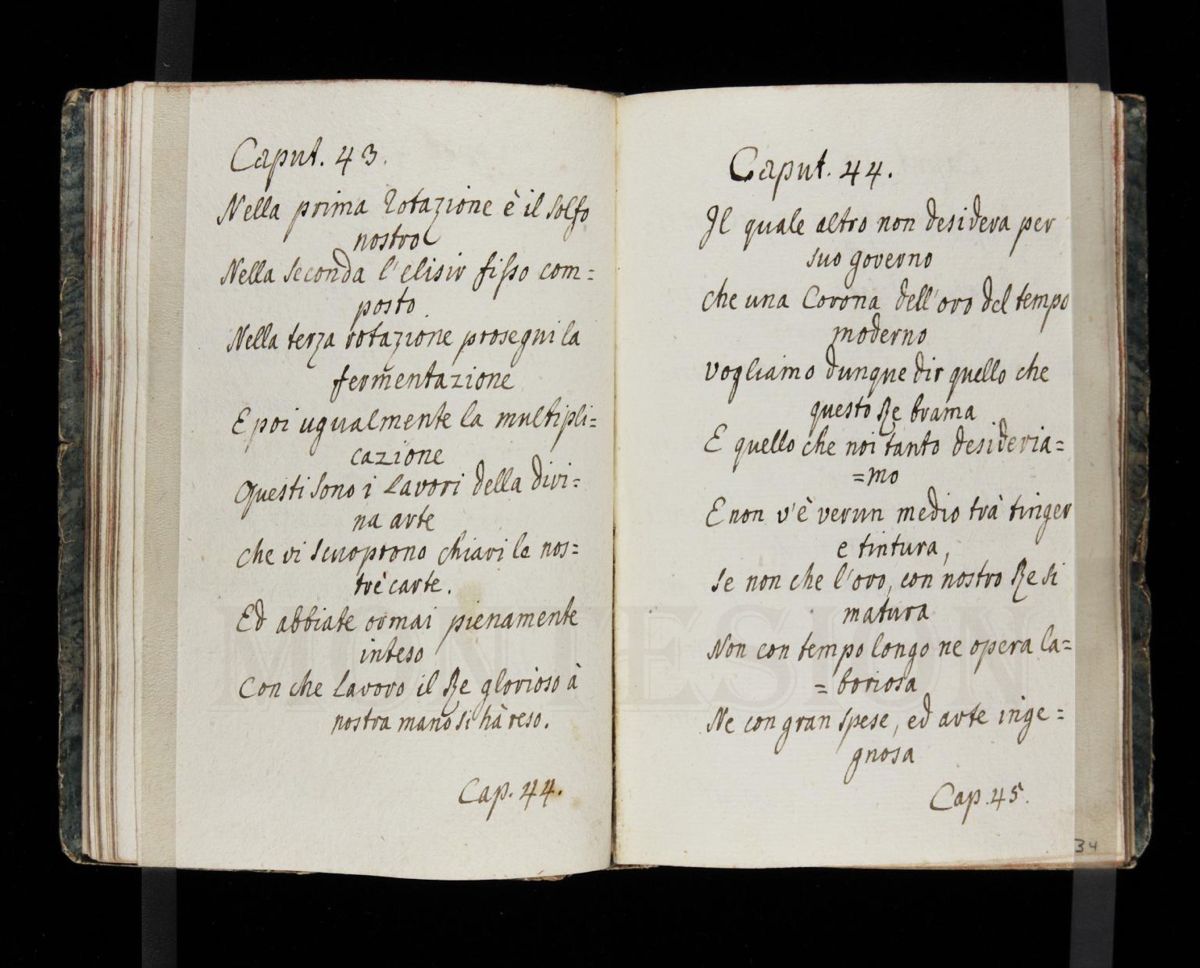 Caput. 43.
Nella prima Rotazione è il solfo
nostro
Nella seconda l'elisir fisso com=
posto
Nella terza rotazione prosegui la
fermentazione
E poi ugualmente la multipli=
cazione
Questi sono i Lavori della divi=
na arte
che vi scuoprono chiavi le nos=
tre carte.
Ed abbiate ormai pienamente
inteso
Con che Lavoro il Re glorioso à
nostra mano si hà reso.
Cap. 44.
Caput. 44.
Il quale altro non desidera per
suo governo
che una Corona dell'oro del tempo
moderno
vogliamo dunque dir quello che
questo Re brama
E quello che noi tanto desideria=
=mo
E non v'è verun medio trà tinger
e tintura,
se non che l'oro, con nostro Re si
matura
Non con tempo longo ne opera la=
=boriosa
Ne con gran spese, ed arte inge=
gnosa
Cap. 45.
34
MONTESION